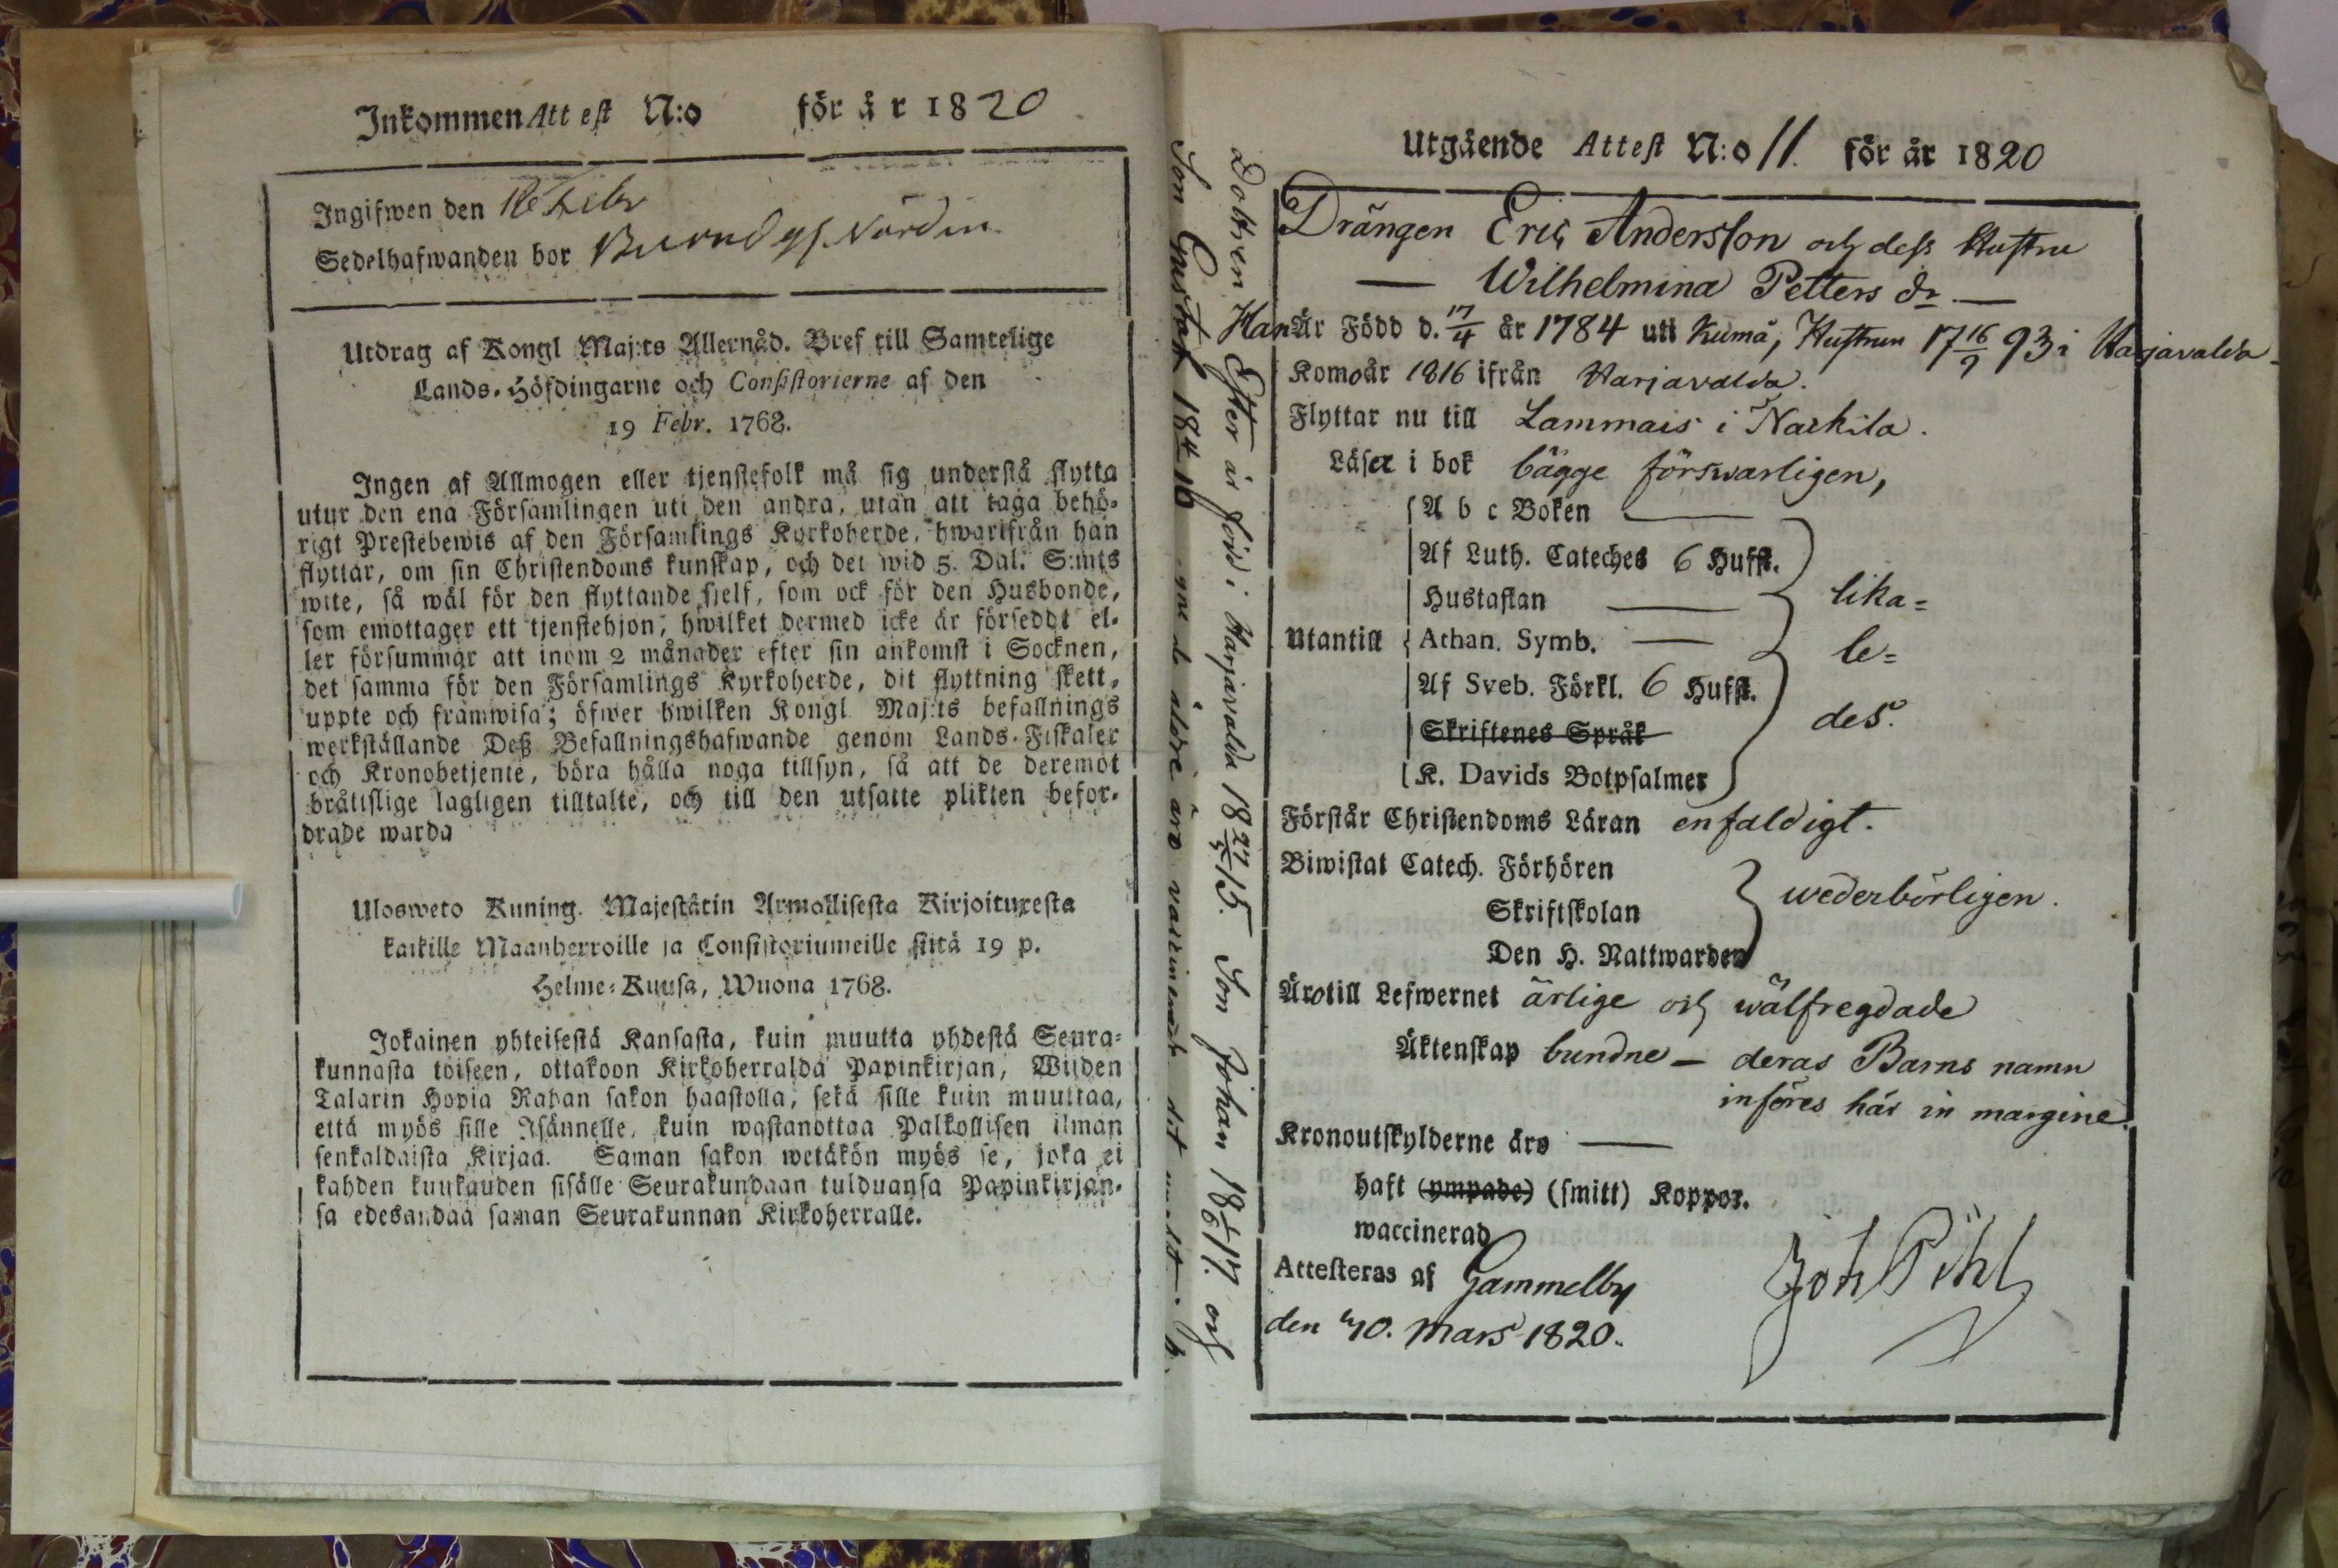 Inkommen Attest N:o för år 1820
Ingifwen den 16 Febr
Sedelhafwanden bor
Utdrag af Kongl Maj:ts Allernåd. Bref till Samtelige
Lands-Höfdingarne och Consistorierne af den
19 Febr. 1768.
Ingen af Allmogen eller tjenstefolk må sig understå flytta
utur den ena Församlingen uti den andra, utan att taga behö-
rigt Prestebewis af den Församlings Kyrkoherde, hwarifrån han
flyttar, om sin Christendoms kunskap, och det wid 5. Dal. S:mts
wite, så wäl för den flyttande sjelf, som ock för den Husbonde,
som emottager ett tjenstehjon, hwilket dermed icke är förseddt el-
ler försummar att inom 2 månader efter sin ankomst i Socknen,
det samma för den Församlings Kyrkoherde, dit flyttning skett,
uppte och framwisa; öfwer hwilken Kongl Maj:ts befallnings
werkställande Deß Befallningshafwande genom Lands-Fiskaler
och Kronobetjente, böra hålla noga tillsyn, så att de deremot
bråttslige lagligen tilltalte, och till den utsatte plikten befor-
drade warda
Ulosweto Kuning. Majestätin Armollisesta Kirjoituxesta
kaikille Maanherroille ja Consistoriumeille siitä 19 p.
Helme-Kuusa, Wuona 1768.
Jokainen yhteisestä Kansasta, kuin muutta yhdestä Seura-
kunnasta toiseen, ottakoon Kirkoherralda Papinkirjan, Wijden
Talarin Hopia Rahan sakon haastolla, sekä sille kuin muuttaa,
että myös sille Isännelle, kuin wastanottaa Palkollisen ilman
senkaldaista Kirjaa. Saman sakon wetäkön myös se, joka ei
kahden kuukauden sisälle Seurakundaan tulduansa Papinkirjan-
sa edesandaa saman Seurakunnan Kirkoherralle.
Son Gustaf 18 4 16 de äldre äro vaccinerade
Dottren Ester är född i Harjavalda 18 27/5 15. Son Johan 18 17. och
Utgående Attest N:o 11. för år 1820
Drängen Eric Andersson och dess Hustru
— Wilhelmina Petters dr —
Han Är Född d. 17/4 år 1784 uti Kumå, Hustrun 17 16/9 93 i Harjavalda
Komo år 1816 ifrån Harjavalda.
Flyttar nu till Lammais i Nackila.
Läser i bok bägge förswarligen,
A b c Boken —
Af Luth. Cateches 6 Hufst.
Hustaflan — lika=
Utantill Athan. Symb. — le=
Af Sveb. Förkl. 6 Hufst.
des.
Skriftenes Språk
K. Davids Botpsalmer
Förstår Christendoms Läran enfaldigt.
Biwistat Catech. Förhören
wederbörligen.
Skriftskolan
Den H. Nattwarden
Äro till Lefwernet ärlige och wälfregdade
Äktenskap bundne — deras Barns namn
införes här in margine
Kronoutskylderne äro —
haft (ympade) (smitt) Koppor.
waccinerad
Attesteras af Gammelby Joh Pihl
den 30. Mars 1820.